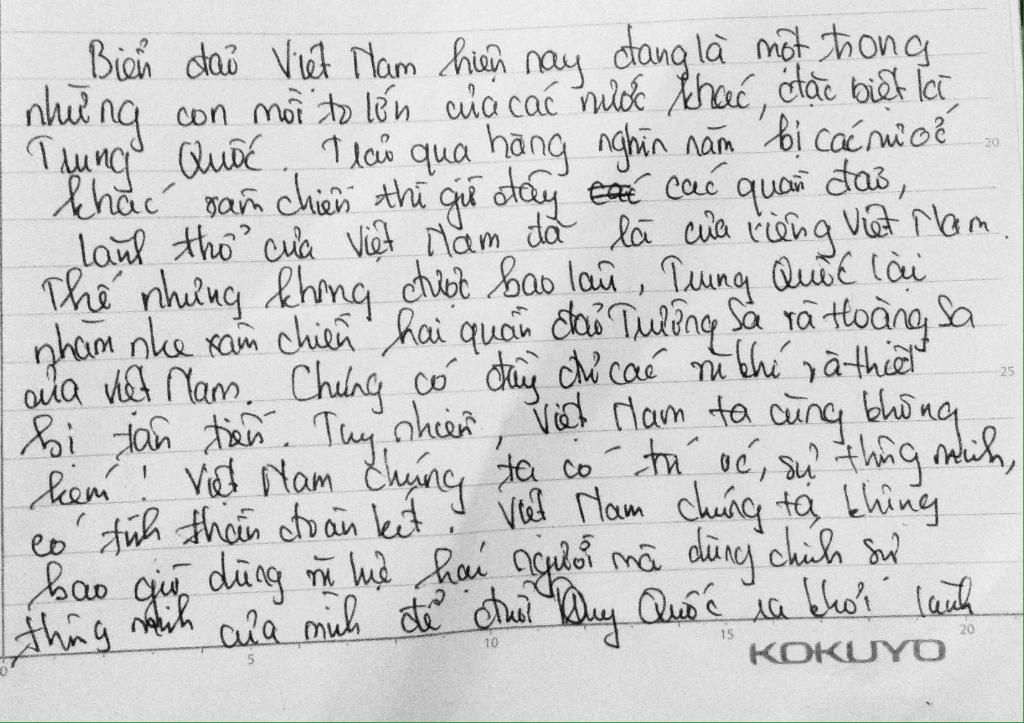 Biển đảo Việt Nam hiện nay đang là một trong
những con mồi to lớn của các nước khác, đặc biệt là
Trung Quốc. Trải qua hàng nghìn năm bị các nước
khác xâm chiến thì giờ đây các quần đảo,
lãnh thổ của Việt Nam đã là của riêng Việt Nam.
Thế nhưng không được bao lâu, Trung Quốc lại
nhăm nhe xâm chiến hai quần đảo Trường Sa và Hoàng Sa
của Việt Nam. Chúng có đầy đủ các vũ khí và thiết
bị tân tiến. Tuy nhiên, Việt Nam ta cũng không
kém! Việt Nam chúng ta có trí óc, sự thông minh,
có tinh thần đoàn kết. Việt Nam chúng ta không
bao giờ dùng vũ lực hại người mà dùng chính sự
thông minh của mình để đuổi Quy Quốc ra khỏi lãnh
KOKUYO
20
25
0
5
10
15
20